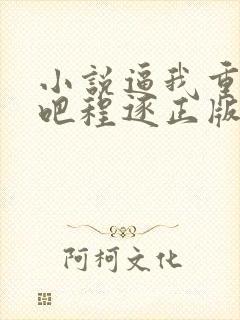 小說逼我重
吧程逐正版
阿柯文化